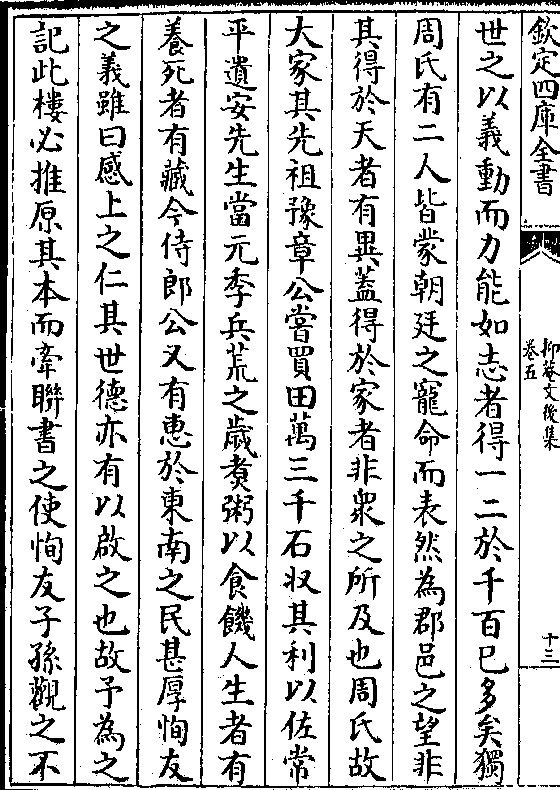 欽定四庫全書
抑菴文後集
卷五
十三
世之以義動而力能如志者得一二於千百已多矣獨
周氏有二人皆蒙朝廷之寵命而表然為郡邑之望非
其得於天者有異蓋得於家者非衆之所及也周氏故
大家其先祖豫章公嘗買田萬三千石収其利以佐常
平遺安先生當元季兵荒之歲煑粥以食饑人生者有
養死者有藏今侍郎公又有惠於東南之民甚厚恂友
之義雖曰感上之仁其世德亦有以啟之也故予為之
記此樓必推原其本而牽聯書之使恂友子孫觀之不